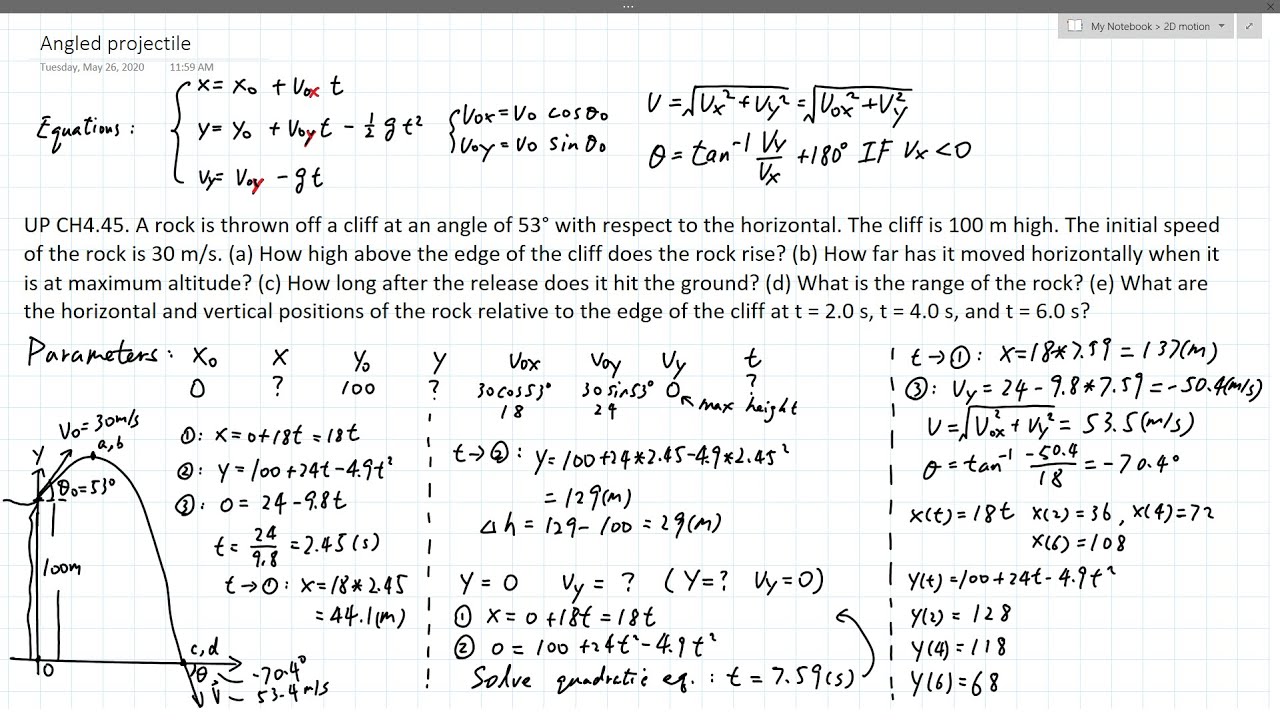 ...
My Notebook > 2D motion
Angled projectile
Tuesday, May 26, 2020 11:59 AM
Equations:
x = x₀ + v₀ₓ t
y = y₀ + v₀y t - ½ g t²
vy = v₀y - g t
v₀ₓ = v₀ cos θ₀
v₀y = v₀ sin θ₀
v = √(vₓ² + vy²) = √(v₀ₓ² + vy²)
θ = tan⁻¹ vy/vₓ + 180° IF vₓ < 0
UP CH4.45. A rock is thrown off a cliff at an angle of 53° with respect to the horizontal. The cliff is 100 m high. The initial speed
of the rock is 30 m/s. (a) How high above the edge of the cliff does the rock rise? (b) How far has it moved horizontally when it
is at maximum altitude? (c) How long after the release does it hit the ground? (d) What is the range of the rock? (e) What are
the horizontal and vertical positions of the rock relative to the edge of the cliff at t = 2.0 s, t = 4.0 s, and t = 6.0 s?
Parameters: x₀ x y₀ y v₀ₓ v₀y vy t
0 ? 100 ? 30cos53° 30sin53° 0 ?
18 24 max height
v₀ = 30m/s
a, b
y
θ₀ = 53°
100m
0
c, d
θ, -70.4°
v - 53.4 m/s
①: x = 0+18t = 18t
②: y = 100+24t-4.9t²
③: 0 = 24-9.8t
t = 24/9.8 = 2.45(s)
t→①: x = 18*2.45
= 44.1(m)
t→②: y = 100+24*2.45-4.9*2.45²
= 129(m)
Δh = 129-100 = 29(m)
y = 0 vy = ? (y=? vy=0)
① x = 0+18t = 18t
② 0 = 100+24t²-4.9t²
Solve quadretic eq.: t = 7.59(s)
t→①: x = 18*7.59 = 137(m)
③: vy = 24-9.8*7.59 = -50.4(m/s)
v = √(v₀ₓ² + vy²) = 53.5(m/s)
θ = tan⁻¹ -50.4/18 = -70.4°
x(t) = 18t x(2) = 36, x(4) = 72
x(6) = 108
y(t) = 100+24t-4.9t²
y(2) = 128
y(4) = 118
y(6) = 68